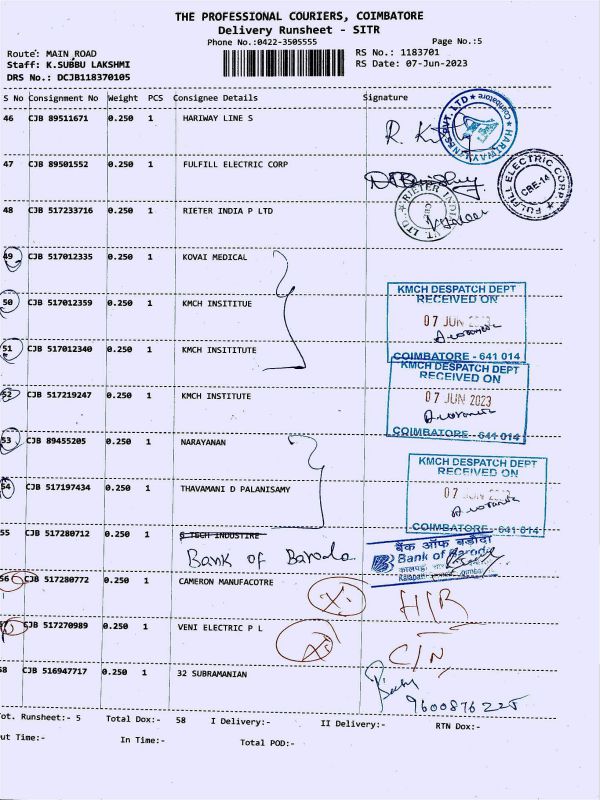 THE PROFESSIONAL COURIERS, COIMBATORE
Delivery Runsheet - SITR
Phone No.:0422-3505555 Page No.:5
Route: MAIN ROAD RS No.: 1183701
Staff: K.SUBBU LAKSHMI RS Date: 07-Jun-2023
DRS No.: DCJB118370105
S No Consignment No Weight PCS Consignee Details Signature
46 CJB 89511671 0.250 1 HARIWAY LINE S
47 CJB 89501552 0.250 1 FULFILL ELECTRIC CORP
FULFILL ELECTRIC CORP CBE-14
48 CJB 517233716 0.250 1 RIETER INDIA P LTD
49 CJB 517012335 0.250 1 KOVAI MEDICAL
50 CJB 517012359 0.250 1 KMCH INSITITUE
KMCH DESPATCH DEPT
RECEIVED ON
07 JUN 2023
COIMBATORE - 641 014
51 CJB 517012340 0.250 1 KMCH INSITITUTE
52 CJB 517219247 0.250 1 KMCH INSTITUTE
KMCH DESPATCH DEPT
RECEIVED ON
07 JUN 2023
COIMBATORE - 641 014
53 CJB 89455205 0.250 1 NARAYANAN
54 CJB 517197434 0.250 1 THAVAMANI D PALANISAMY
KMCH DESPATCH DEPT
RECEIVED ON
07 JUN 2023
COIMBATORE - 641 014
55 CJB 517280712 0.250 1 S TECH INDUSTIRE
Bank of Baroda
बैंक ऑफ बड़ौदा
Bank of Baroda
56 CJB 517280772 0.250 1 CAMERON MANUFACOTRE
57 CJB 517270989 0.250 1 VENI ELECTRIC P L
C/N
58 CJB 516947717 0.250 1 32 SUBRAMANIAN
9600876225
ot. Runsheet:- 5 Total Dox:- 58 I Delivery:- II Delivery:- RTN Dox:-
ut Time:- In Time:- Total POD:-